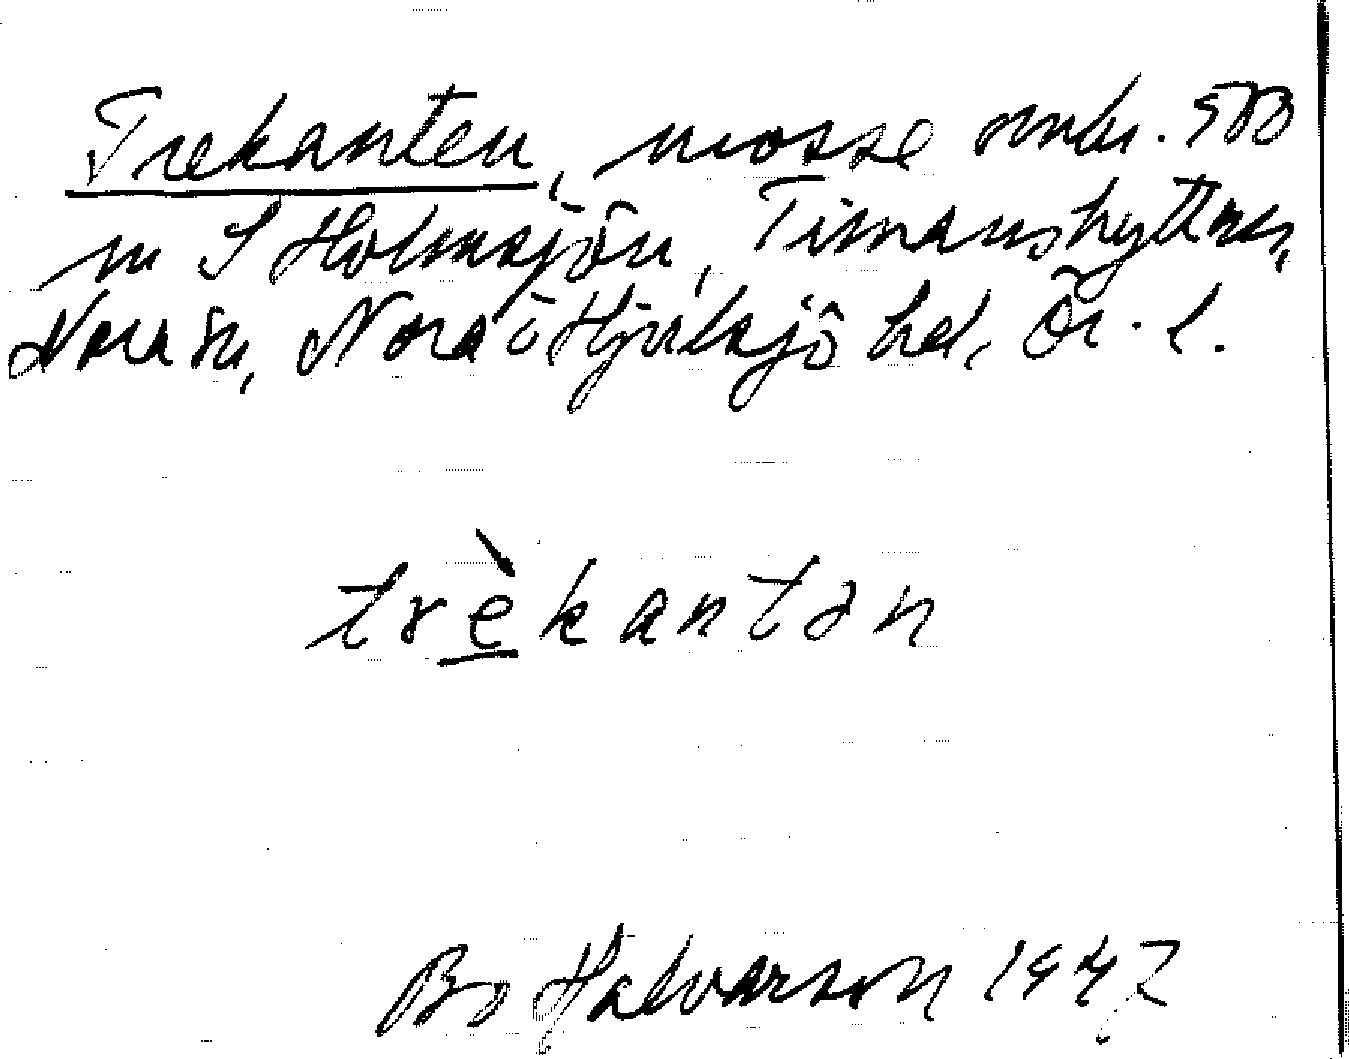 Trekanten, mosse omkr. 500
m S Holmsjön, Timanshyttan,
Nora sn, Nora o Hjulsjö hd, Ör. l.
trèkantən
Bo Halvarson 1947